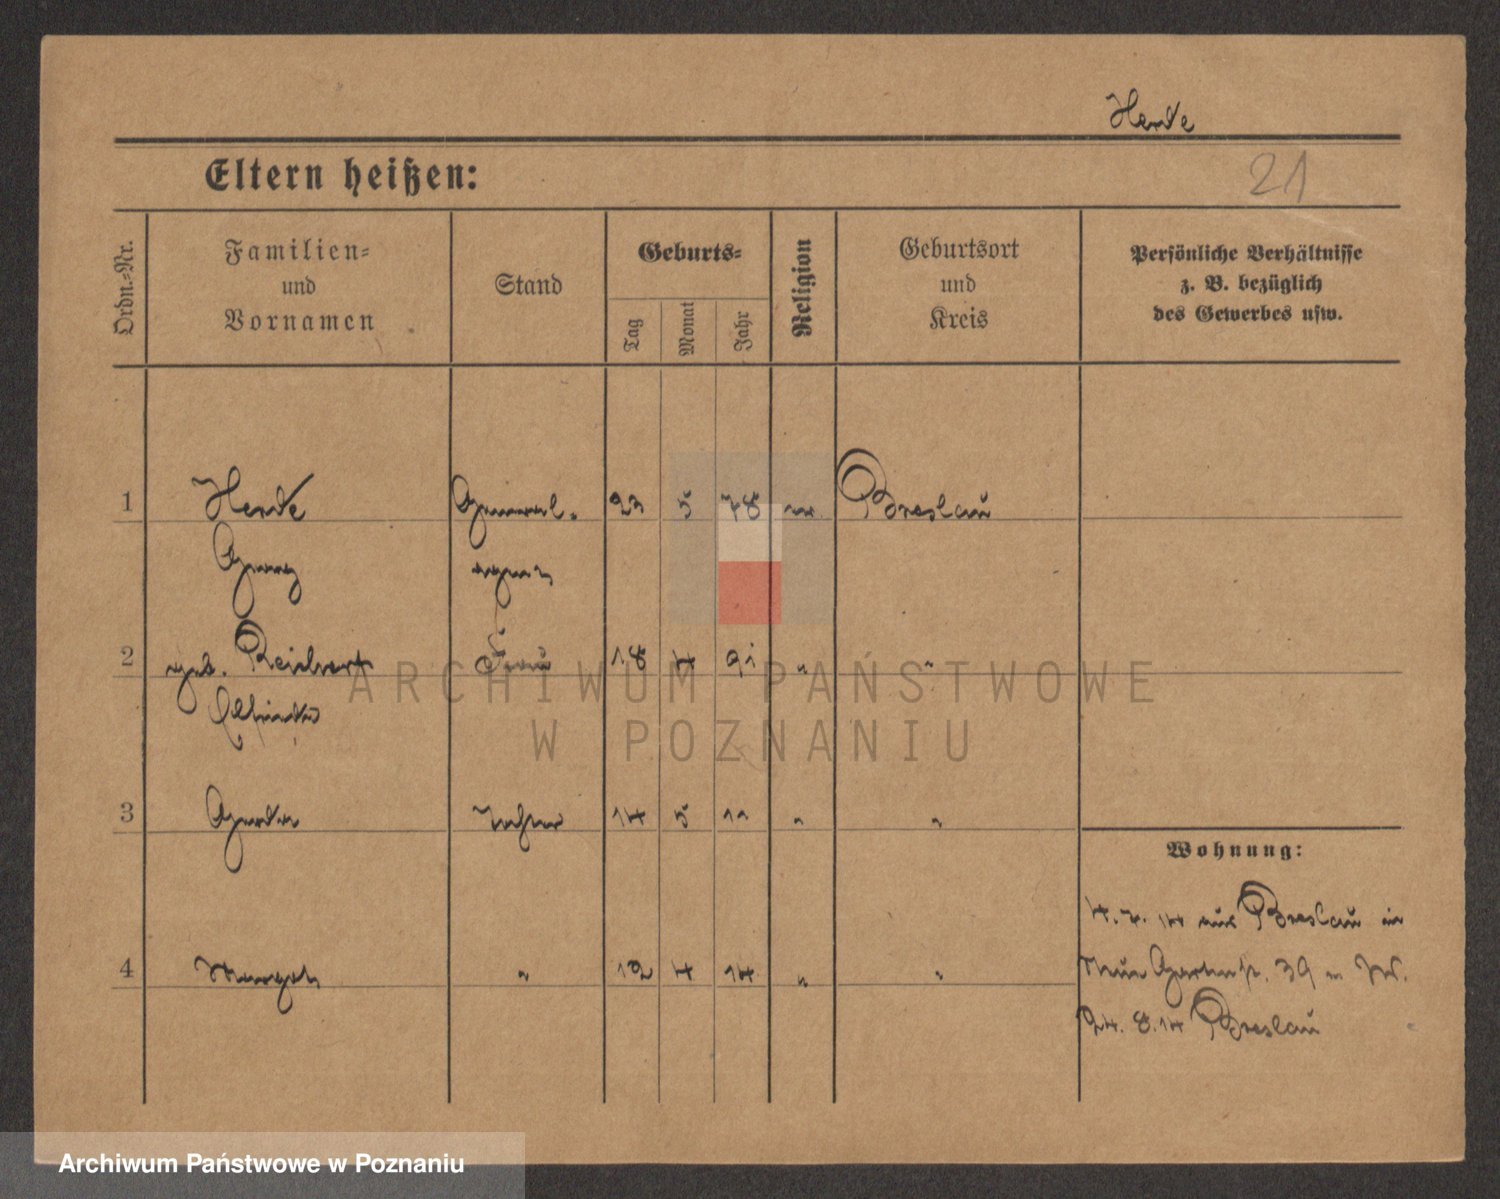 Herde
Eltern heißen:
21
Ordn.-Nr.
Familien-
und
Vornamen
Stand
Geburts-
Tag
Monat
Jahr
Religion
Geburtsort
und
Kreis
Persönliche Verhältnisse
z. B. bezüglich
des Gewerbes usw.
1 Herde General- 23 5 78 Breslau
Georg agent
2 geb. Reichert Frau 18 4 91 " "
3 Gerda Tochter 14 5 11 " "
Wohnung:
4. 7. 14 aus Breslau in
4 Margot " 12 4 14 " "
Neue Gartenstr. 39
24. 8. 14 Breslau
ARCHIWUM PAŃSTWOWE
W POZNANIU
Archiwum Państwowe w Poznaniu